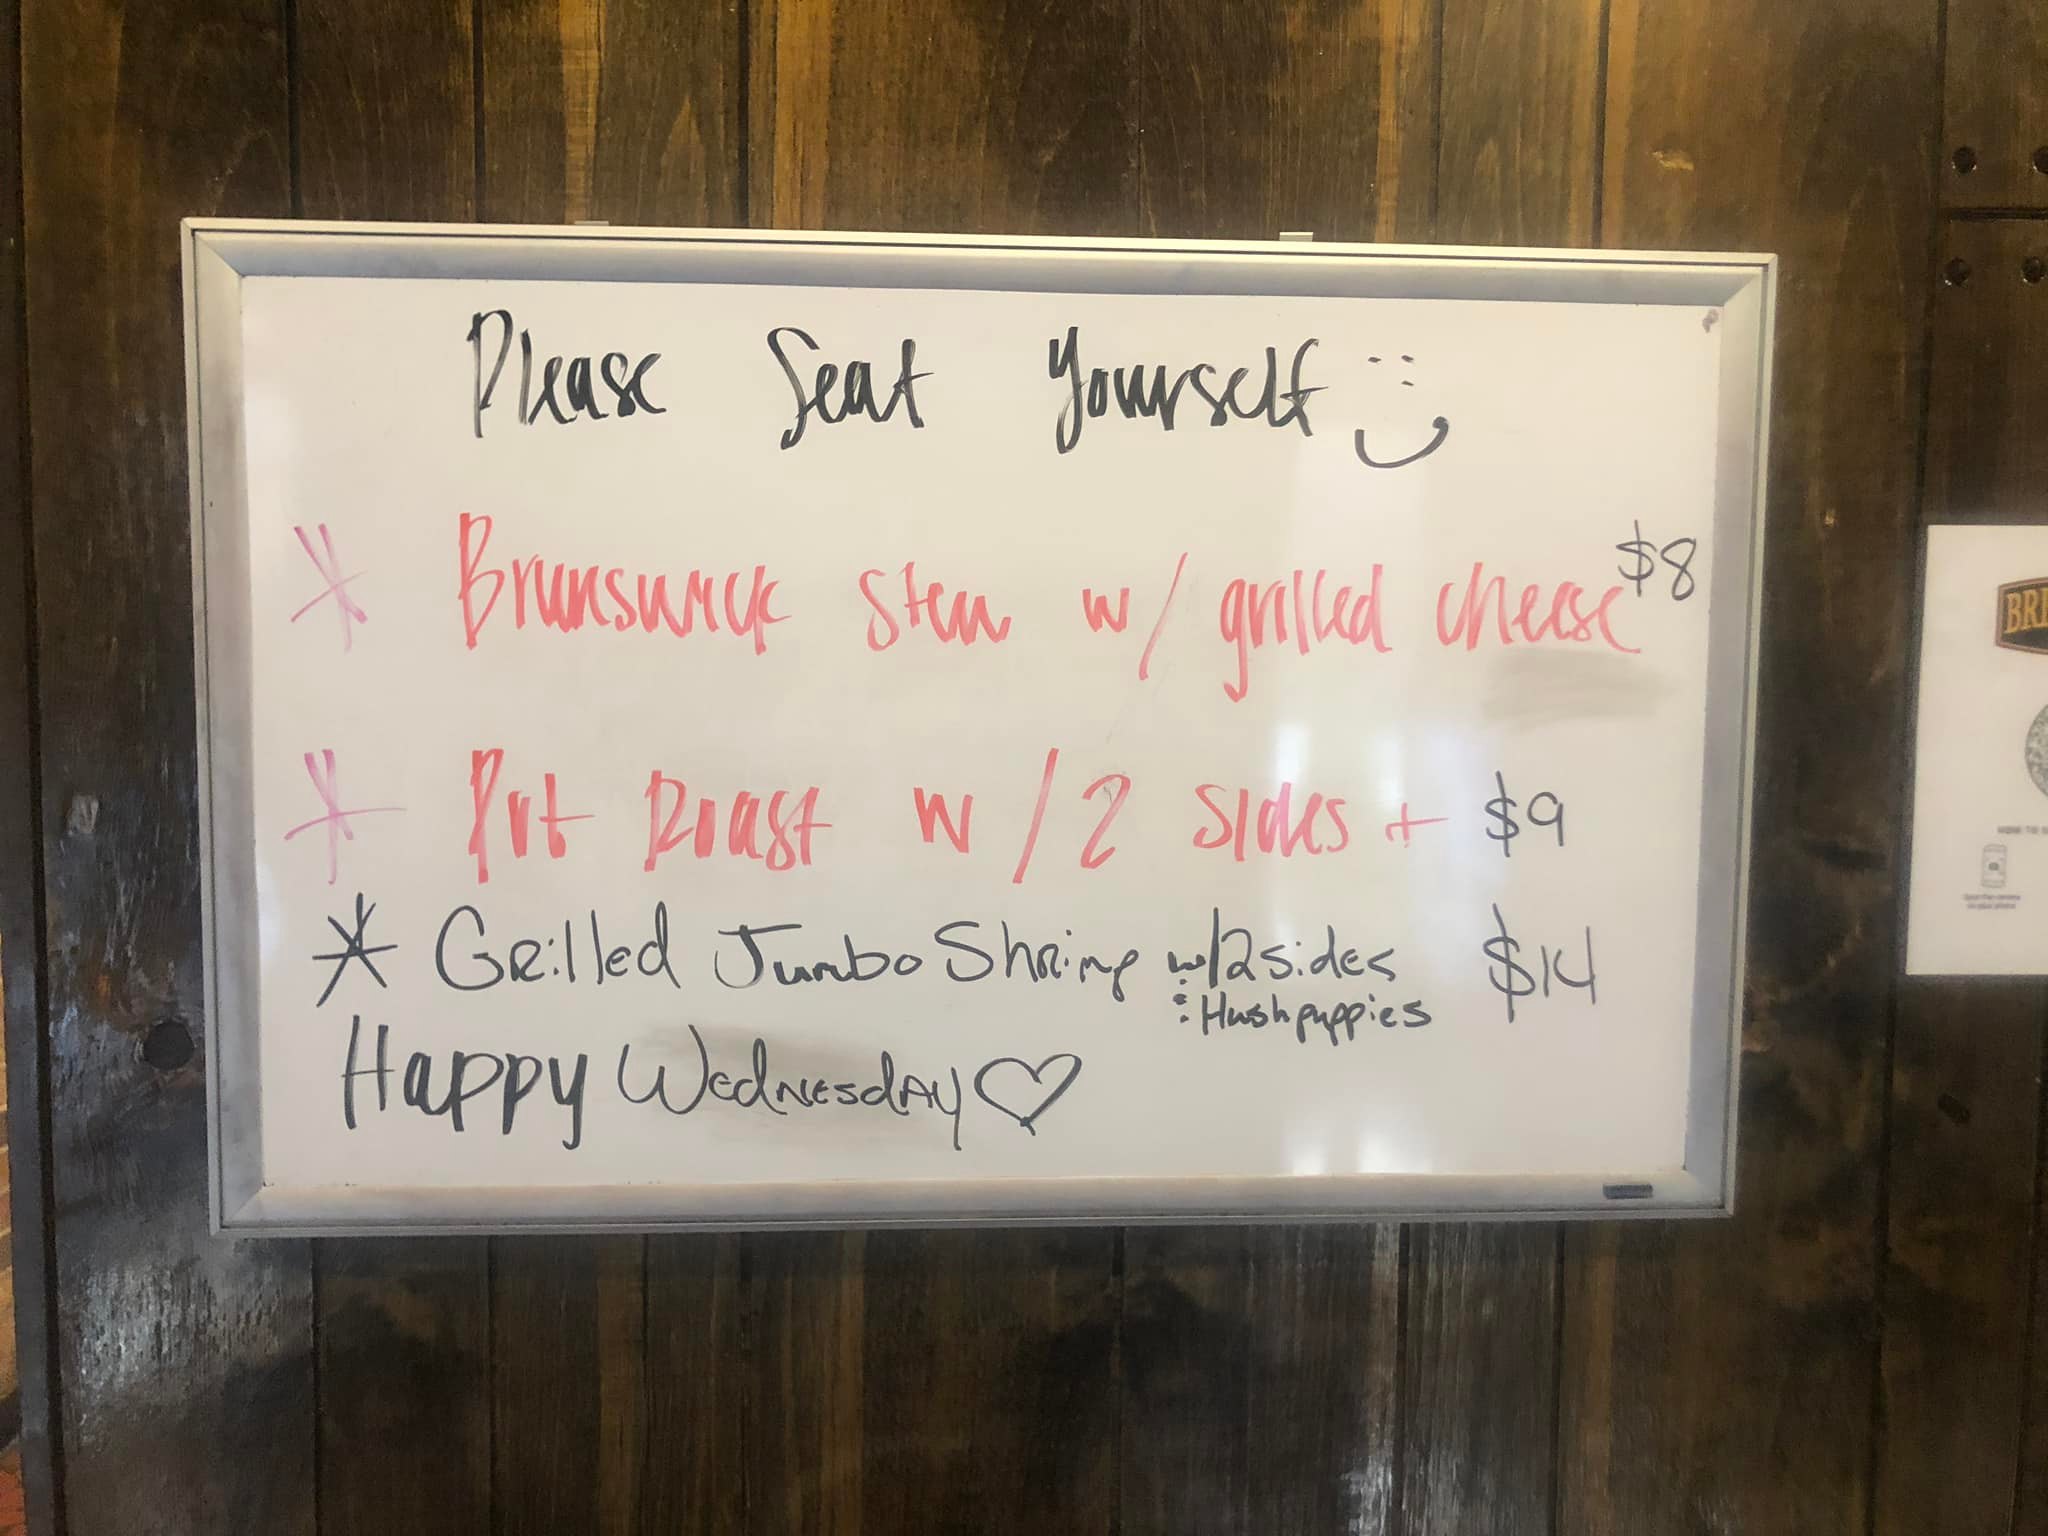 Please Seat Yourself
* Brunswick Stew w/ grilled cheese $8
* Pot Roast w/2 sides + $9
* Grilled Jumbo Shrimp w/2 sides $14
: Hushpuppies
Happy Wednesday
BRI